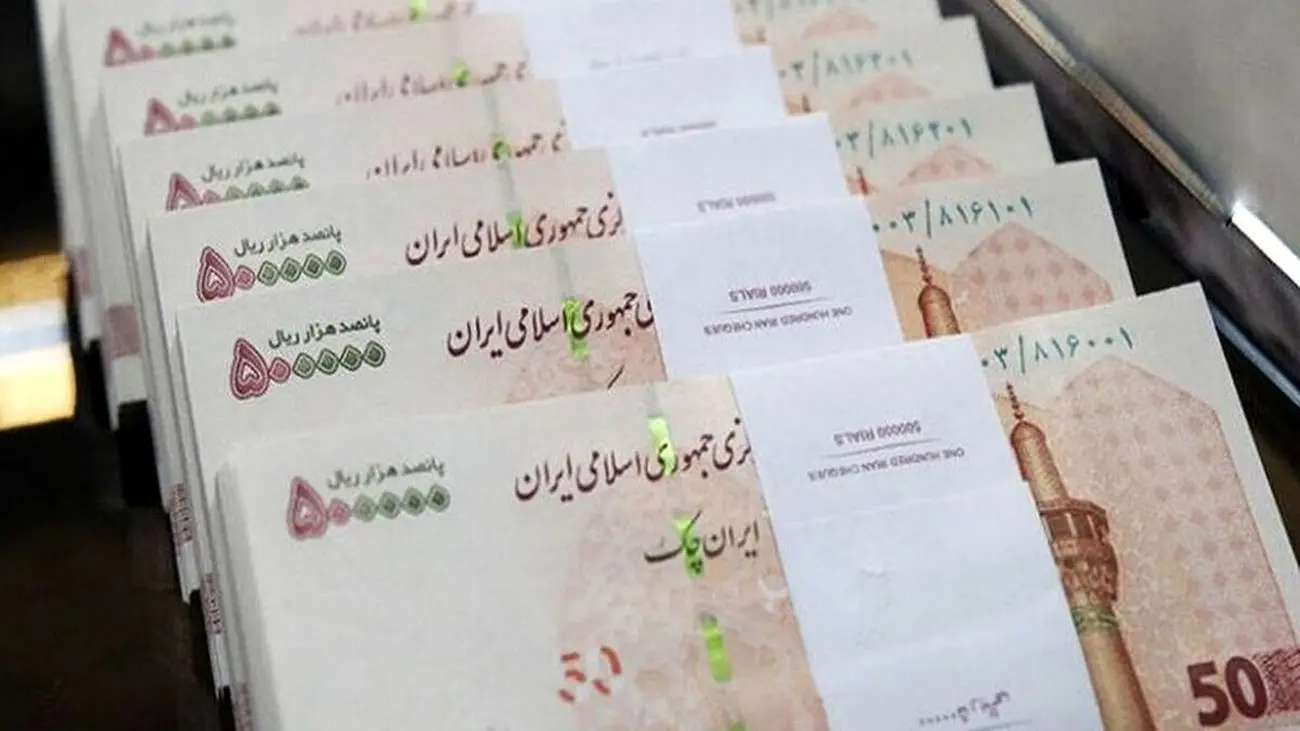 ۵۰۰۰۰۰
۵۰۰۰۰۰
پانصد هزار ریال
۰۳/۸۱۶۳۰۱
۵۰۰۰۰۰
پانصد هزار ریال
جمهوری اسلامی ایران
۰۰۳/۸۱۶۲۰۱
۵۰۰۰۰۰
پانصد هزار ریال
جمهوری اسلامی ایران
500000 RIALS
۰۰۳/۸۱۶۱۰۱
۵۰۰۰۰۰
پانصد هزار ریال
جمهوری اسلامی ایران
500000 RIALS
ONE HUNDRED IRAN CHEQUES
۰۳/۸۱۶۰۰۱
۵۰۰۰۰۰
پانصد هزار ریال
جمهوری اسلامی ایران
ایران چک
500000 RIALS
ONE HUNDRED IRAN CHEQUES
50